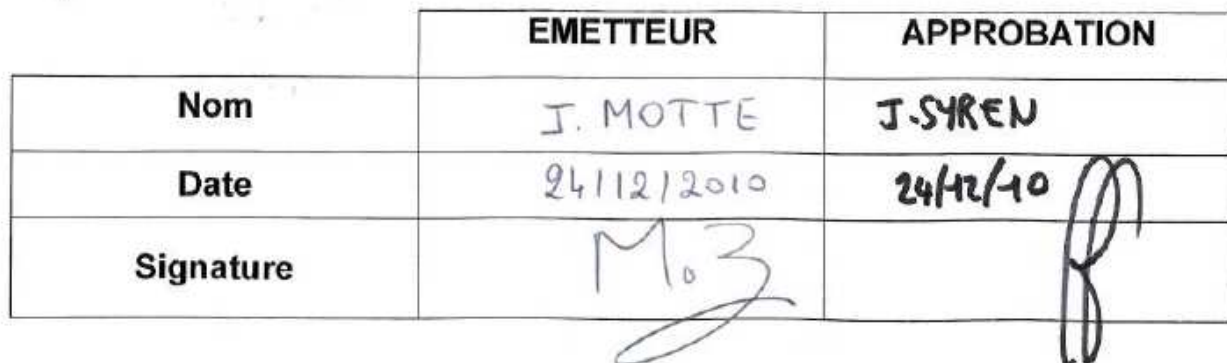 EMETTEUR APPROBATION
Nom J. MOTTE J.SYREN
Date 24/12/2010 24/12/10
Signature